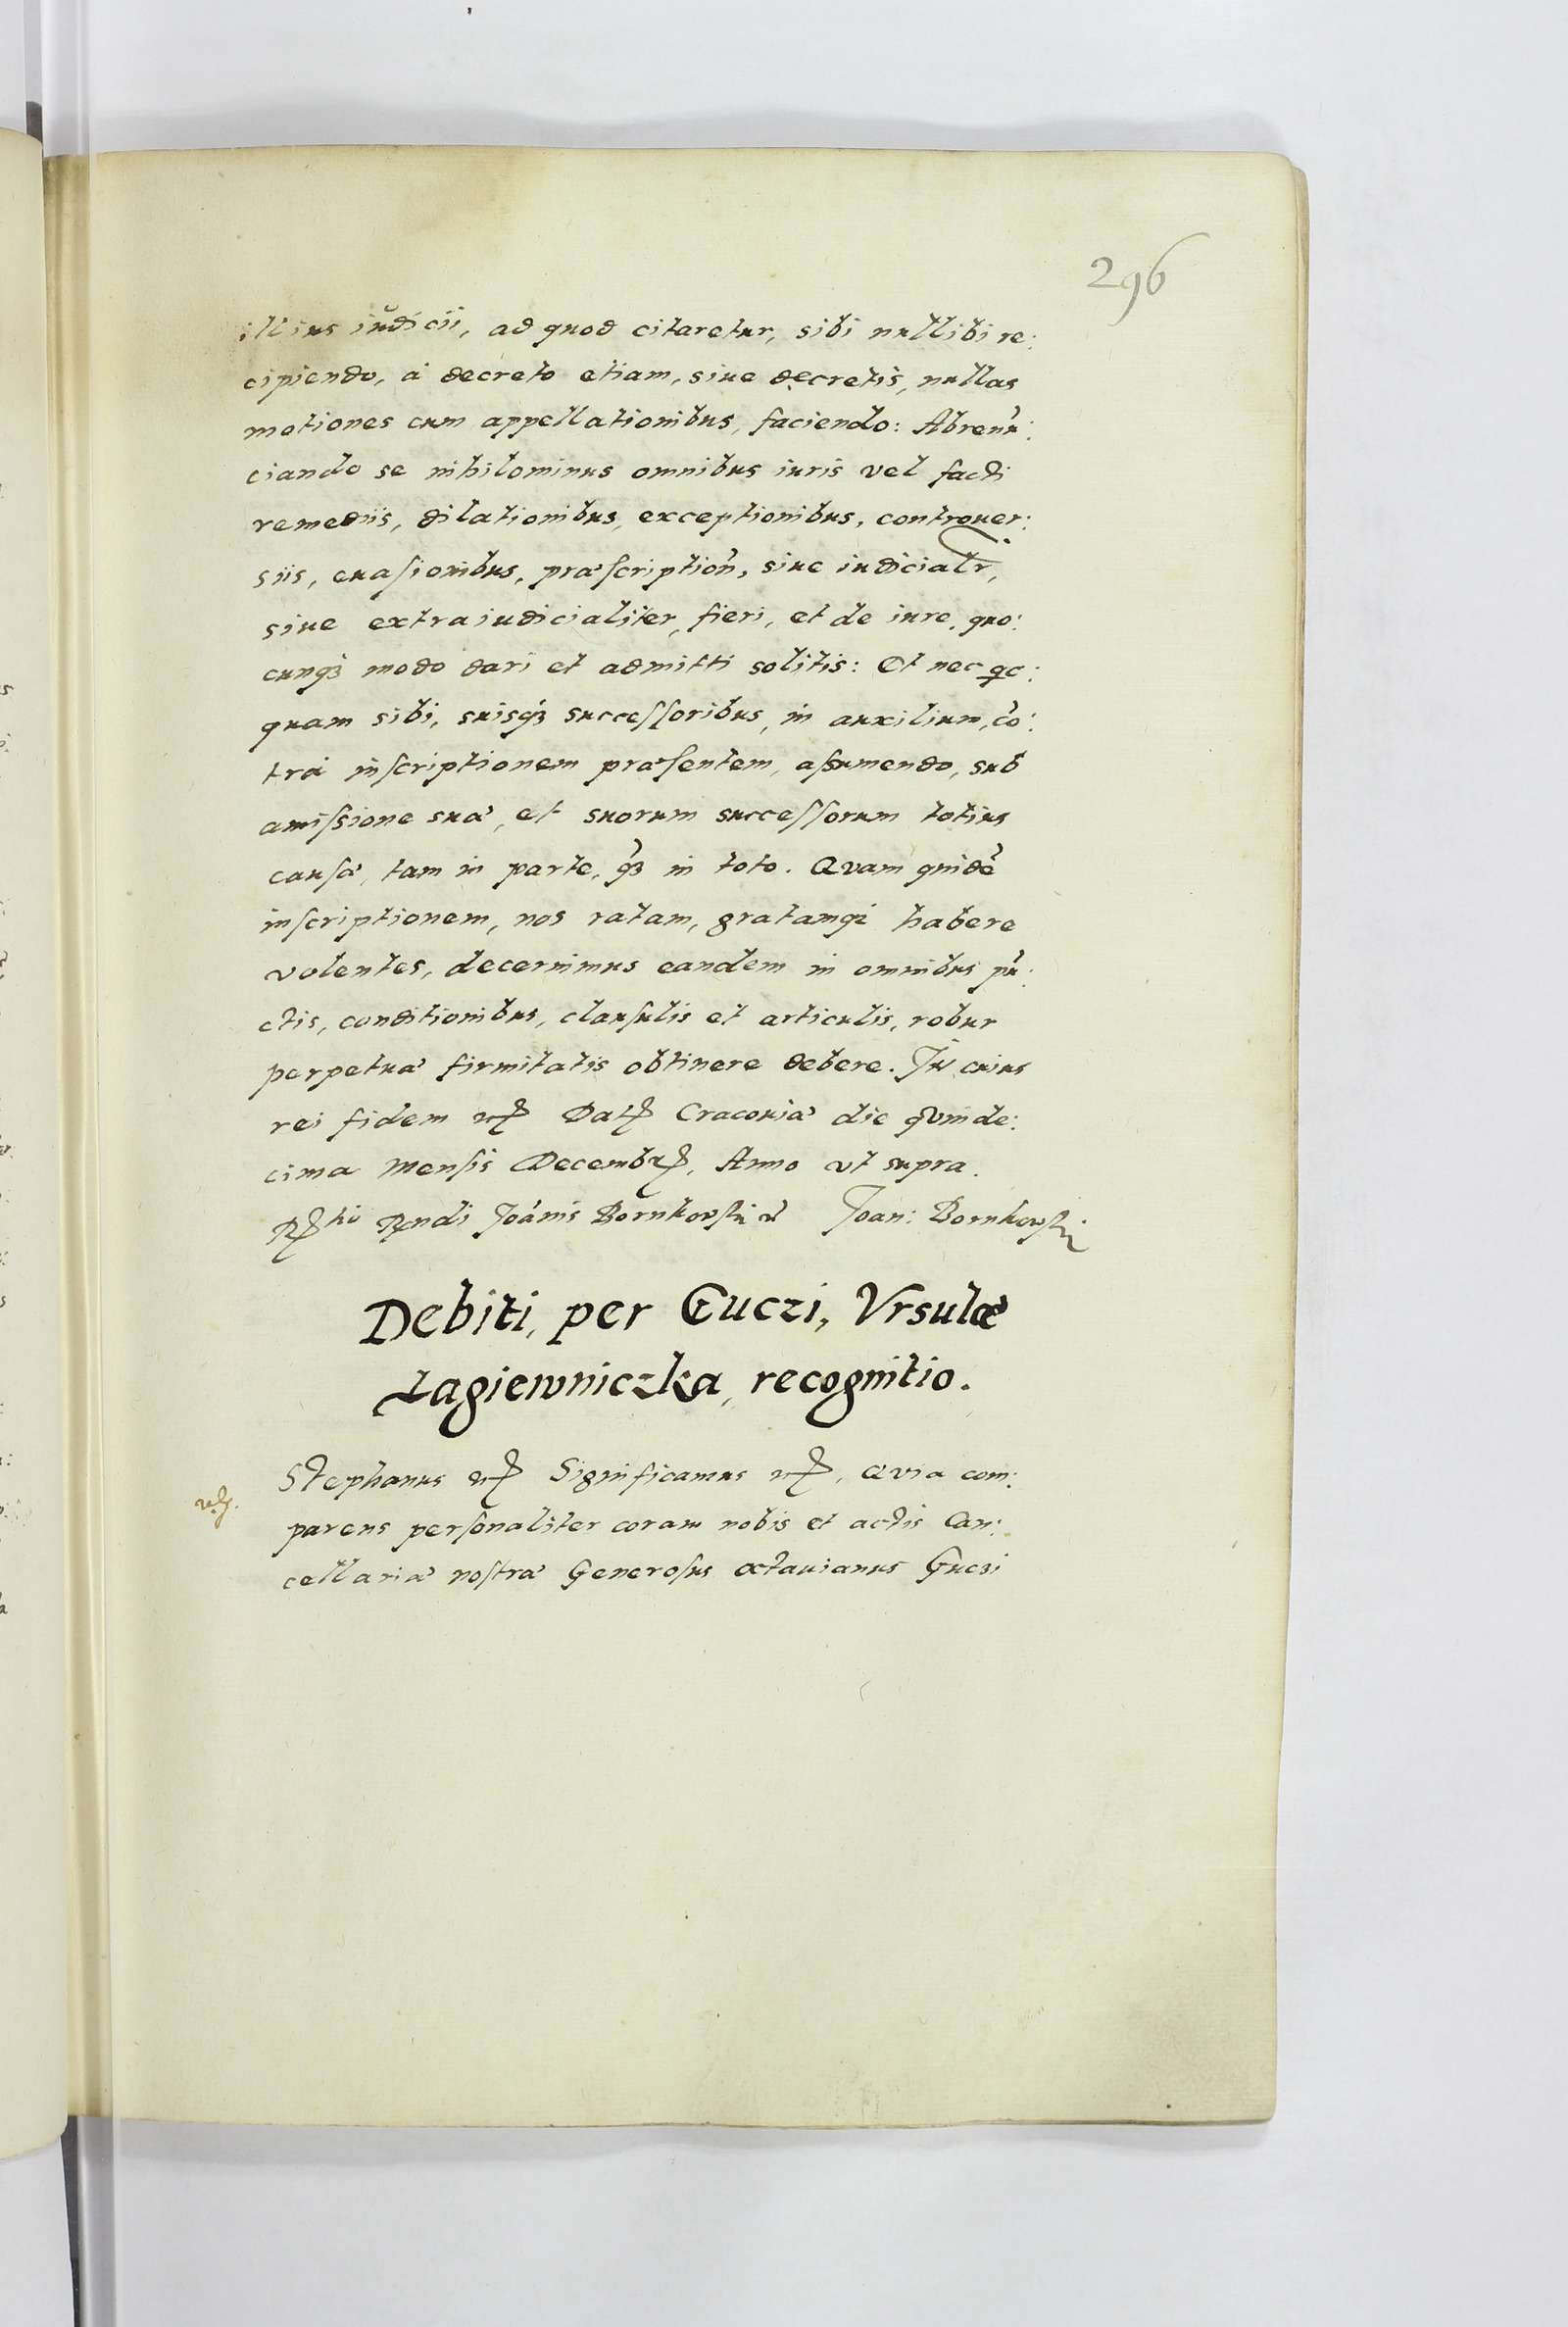 296
illius iudicii, ad quod citaretur, sibi nullibi re:
cipiendo, à decreto etiam, siue decretis, nullas
motiones cum appellationibus, faciendo: Abrenũ:
ciando se nihilominus omnibus iuris vel facti
remediis, dilationibus, exceptionibus, controuer:
siis, euasionibus, præscription̄, siue iudicialr̄,
siue extraiudicialiter, fieri, et de iure, quo:
cunqꝫ modo dari et admitti solitis: Et nec qc:
quam sibi, suisqꝫ successoribus, in auxilium, cõ:
trà inscriptionem præsentem, assumendo, sub
amissione suæ, et suorum successorum totius
causæ, tam in parte, qꝫ in toto. Qvam quidẽ
inscriptionem, nos ratam, gratamqꝫ habere
volentes, decernimus eandem in omnibus pũ:
ctis, conditionibus, clausulis et articulis, robur
perpetuæ firmitatis obtinere debere. In cuius
rei fidem etc Dat Cracouiæ die qvinde:
cima mensis Decembr, Anno vt supra.
Rndi Joãnis Bornkowski Joan: Bornkowski
Debiti, per Guczi, Vrsulæ
Łagiewniczka, recognitio.
Stephanus etc Significamus etc, Qvia com:
parens personaliter coram nobis et actis Can:
cellariæ nostræ Generosus Octauianus Guczi